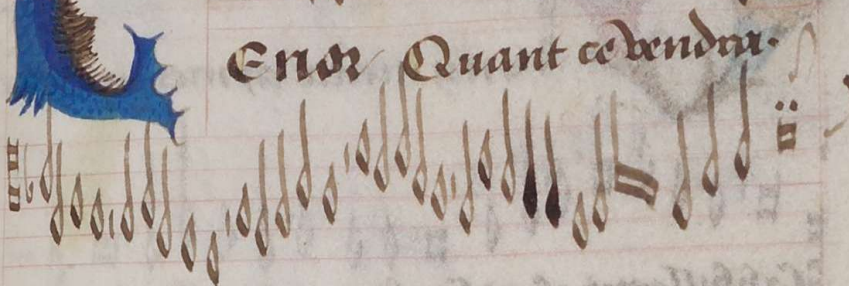 Tenor Quant ce vendra.